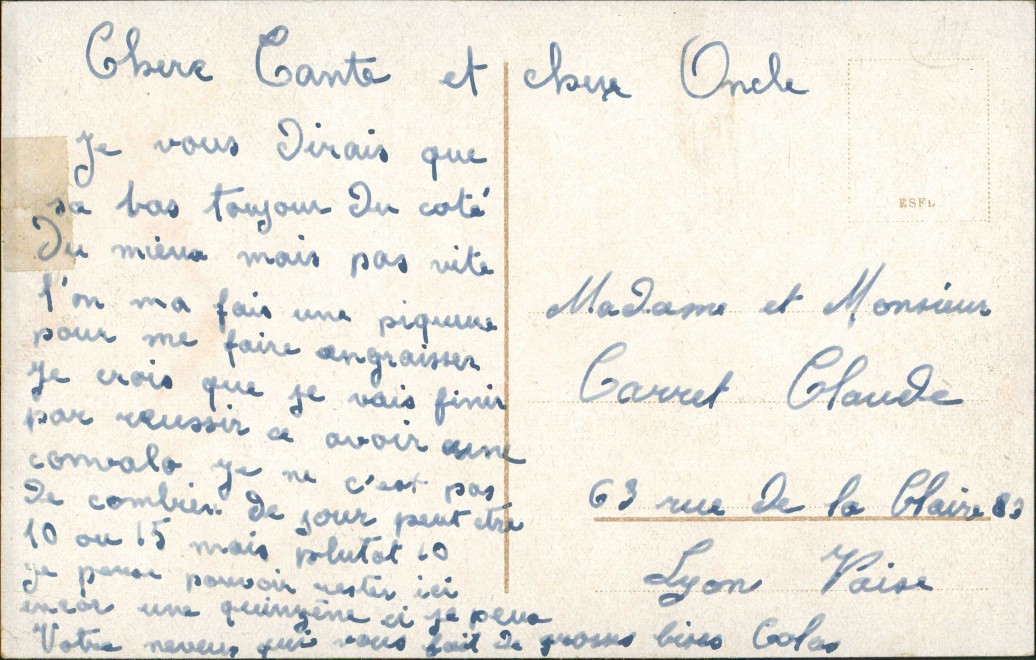 Chere Tante et cher Oncle
Je vous dirais que
sa bas toujour du coté
Du mieux mais pas vite
l'on ma fais une piqueure
pour me faire angraisser
Je crois que je vais finir
par reussir a avoir une
convalo je ne c'est pas
De combien De jour peut etre
10 ou 15 mais plutot 10
je pense pouvoir rester ici
encor une quinzène si je peux
Votre neveux qui vous fait De grosses bises Colas
ESFL
Madame et Monsieur
Carret Claude
63 rue De la Claire 83
Lyon Vaise